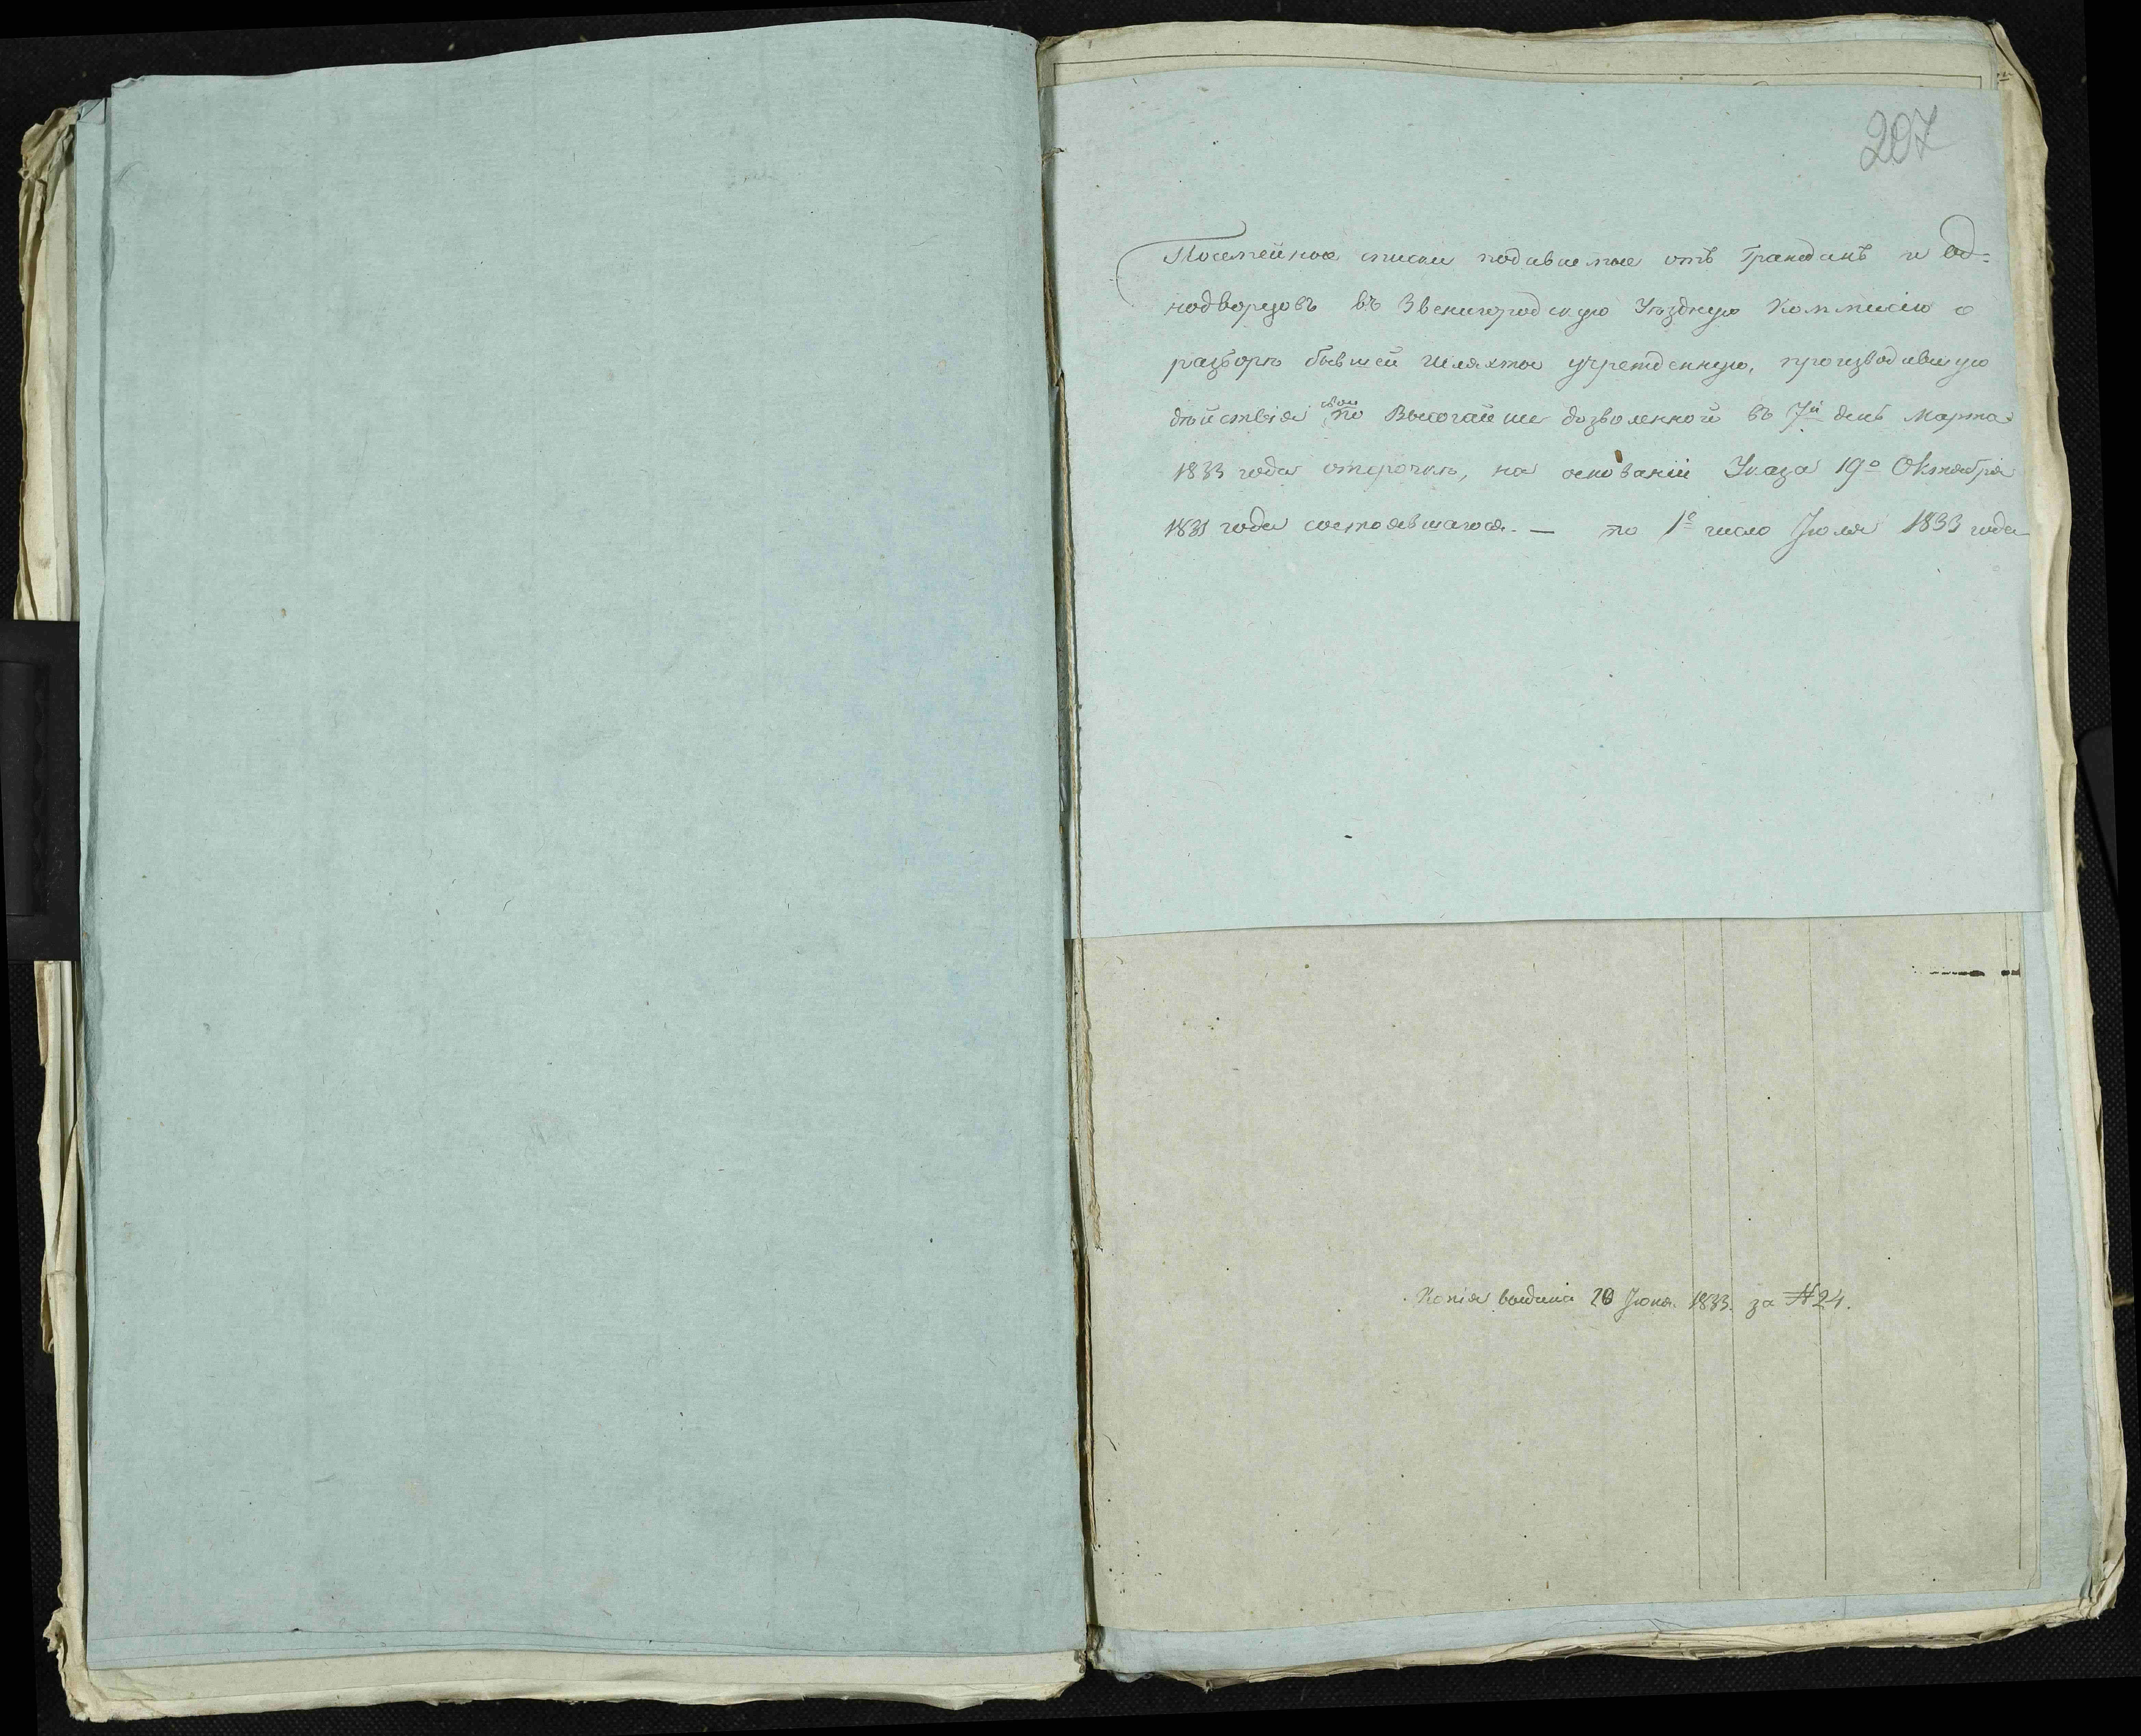 207
Посемейные списки подаваемые отъ Гражданъ и Од=
нодворцовъ въ Звенигородскую Уѣздную Коммисію о
разборѣ бывшей Шляхты учрежденную, производившую
дѣйствія свои по Высочайше дозволенной въ 7й день Марта
1833 года отсрочкѣ, на основаніи Указа 19го Октября
1831 года состоявшагося. — по 1е число Іюля 1833 года
Копія выдана 20 Іюня 1833. за №24.